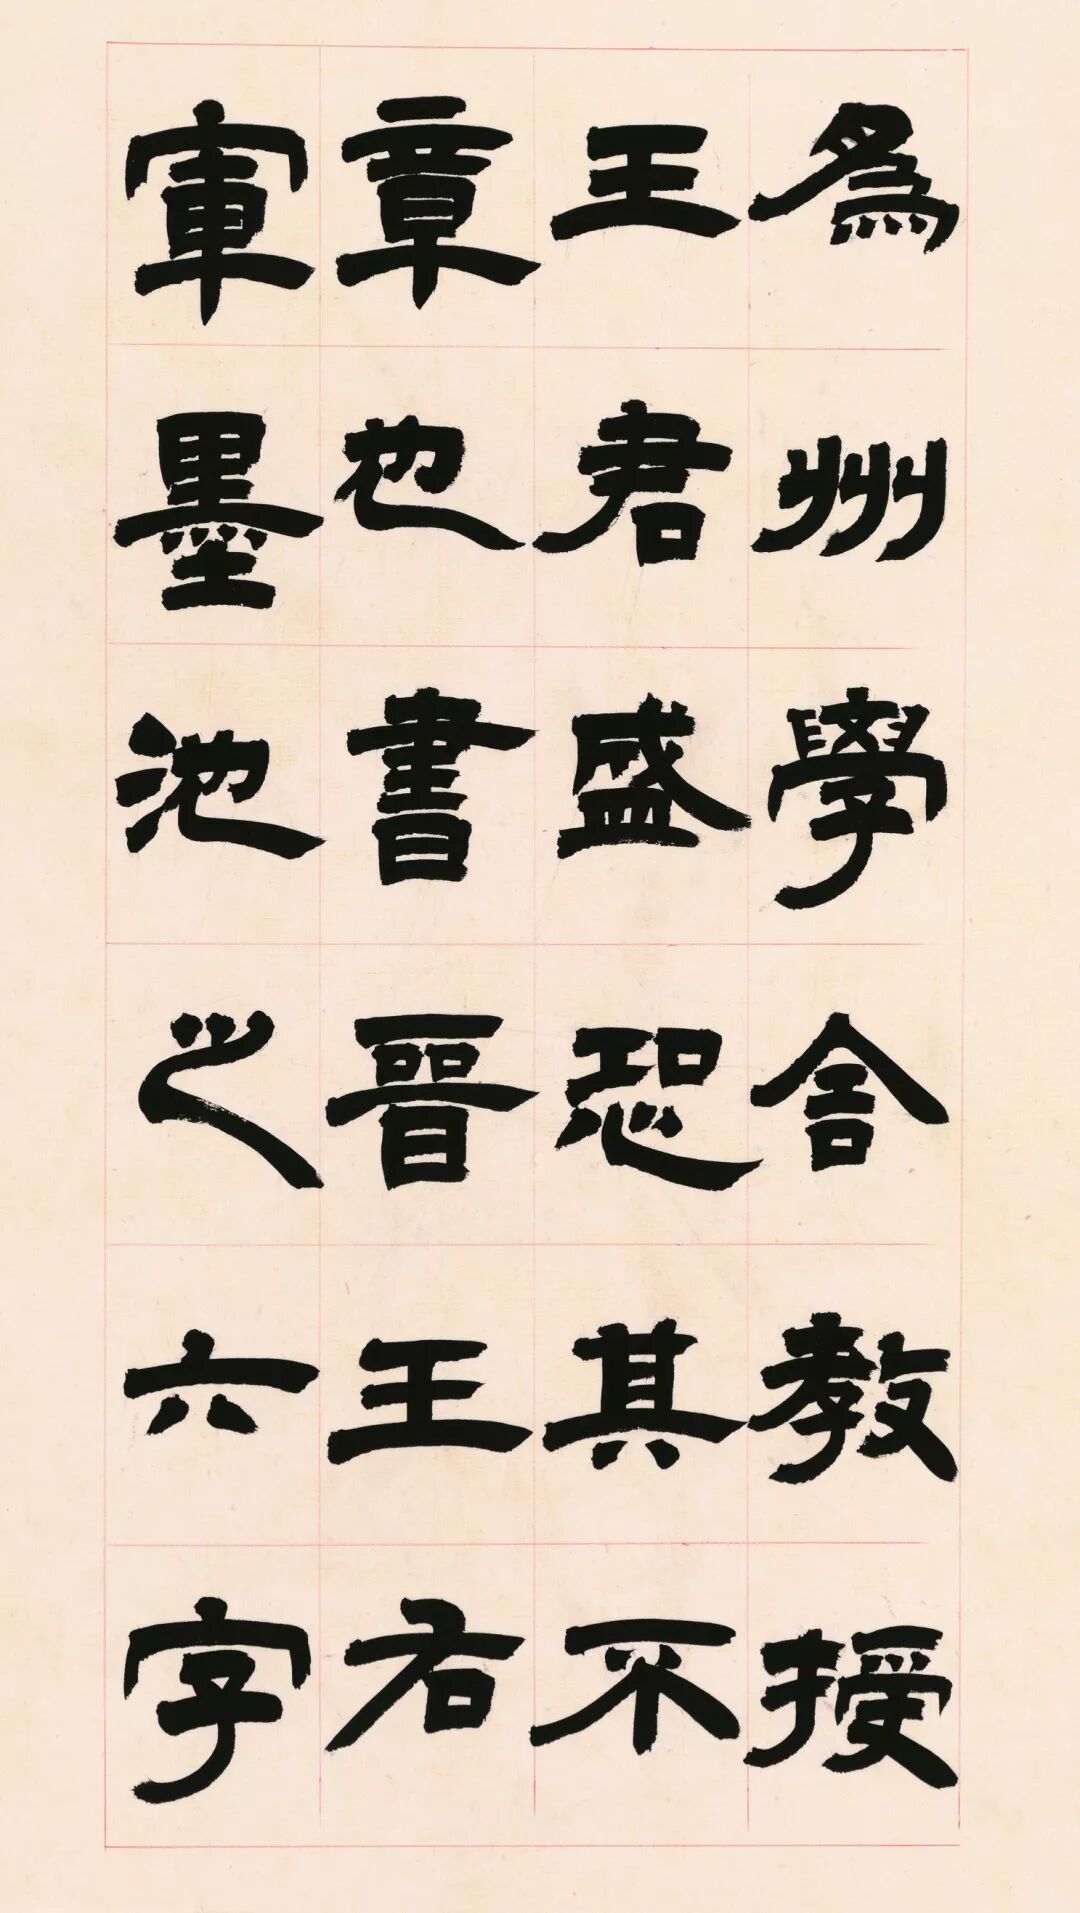 為州學舍教授
王君盛恐其不
章也書晉王右
軍墨池之六字